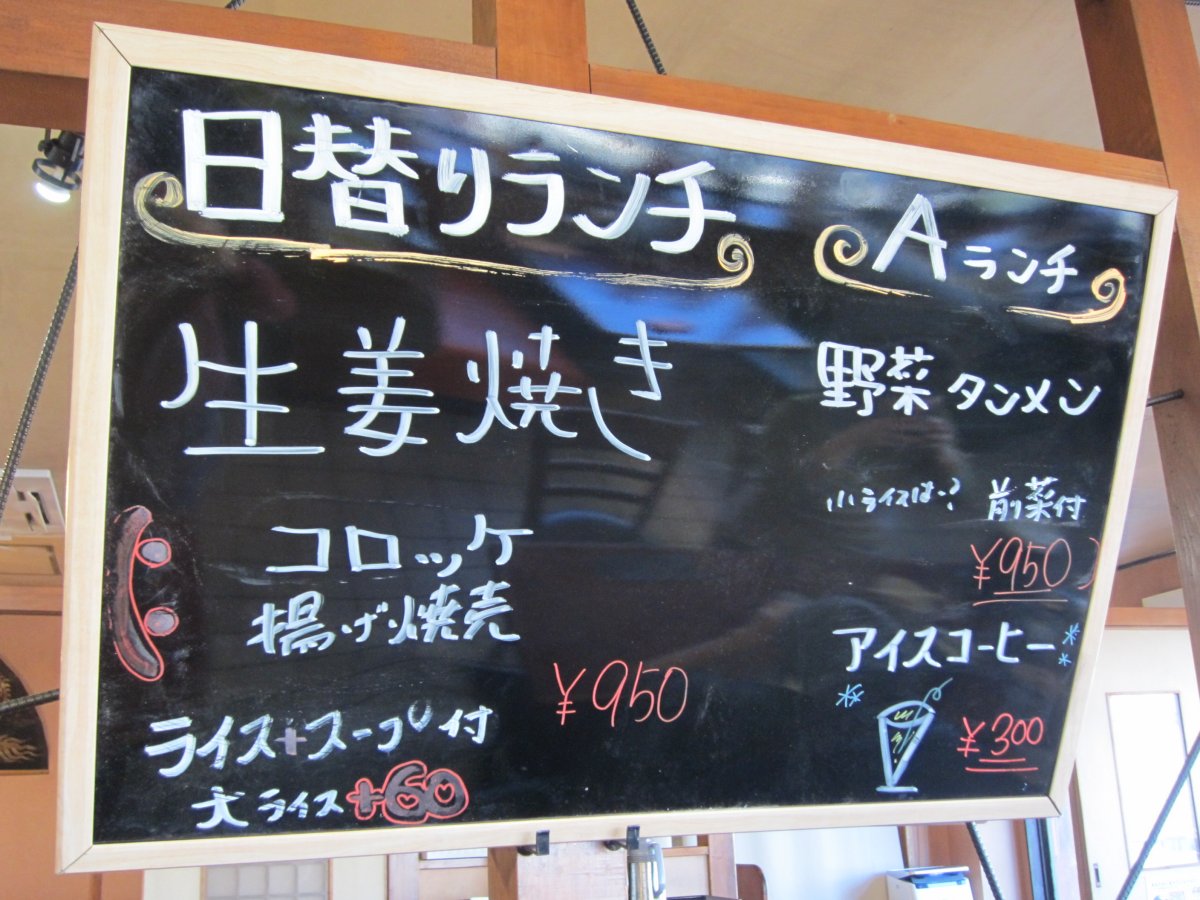 日替りランチ
生姜焼き
コロッケ
揚げ焼売
ライス+スープ付
大ライス+60
¥950
Aランチ
野菜タンメン
小ライスは? 前菜付
¥950
アイスコーヒー
¥300